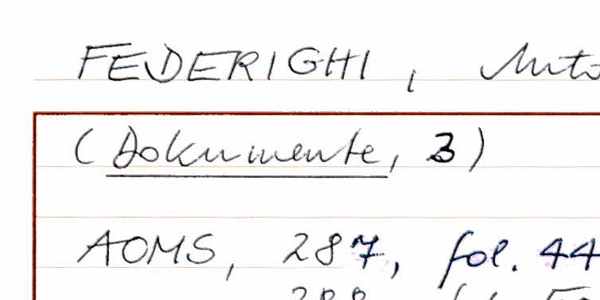 FEDERIGHI, Anto
(Dokumente, 3)
AOMS, 287, fol. 44
288